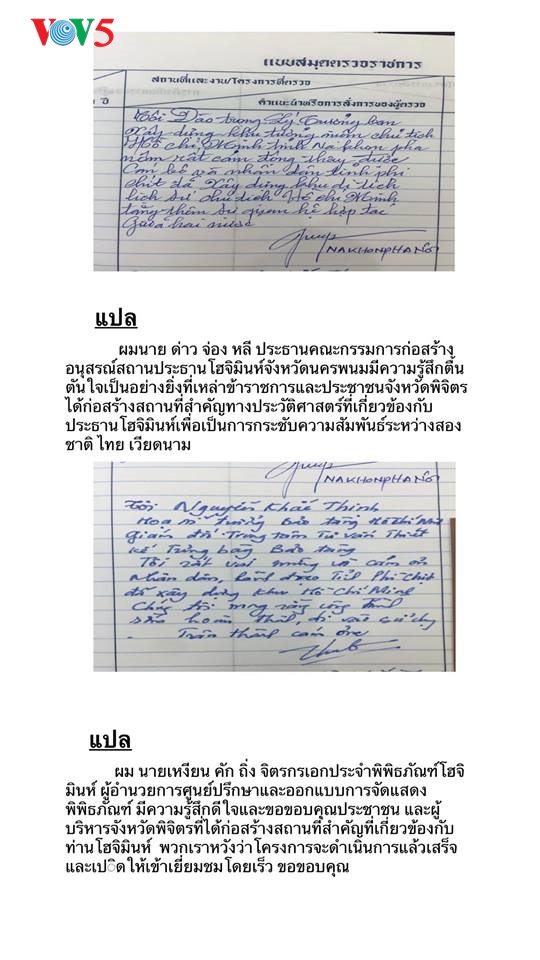 VOV5
แบบสมุดตรวจราชการ
สถานที่และงาน/โครงการที่ตรวจ
ปี
คำแนะนำหรือการสั่งการของผู้ตรวจ
Tôi Đào trọng Lý Trưởng ban
Xây dựng khu tưởng niệm chủ tịch
Hồ chí Minh tỉnh Na khon pha
nôm rất cảm động thấy được
Cán bộ và nhân dân tỉnh phi
chít đã xây dựng khu di tích
lịch sử chủ tịch Hồ chí Minh
tăng thêm sự quan hệ hợp tác
giữa hai nước
NAKHONPHANOM
แปล
ผมนาย ด่าว จ่อง หลี ประธานคณะกรรมการก่อสร้าง
อนุสรณ์สถานประธานโฮจิมินห์จังหวัดนครพนมมีความรู้สึกตื้น
ตันใจเป็นอย่างยิ่งที่เหล่าข้าราชการและประชาชนจังหวัดพิจิตร
ได้ก่อสร้างสถานที่สำคัญทางประวัติศาสตร์ที่เกี่ยวข้องกับ
ประธานโฮจิมินห์เพื่อเป็นการกระชับความสัมพันธ์ระหว่างสอง
ชาติ ไทย เวียดนาม
NAKHONPHANOM
Tôi Nguyễn Khắc Thịnh
Họa sĩ trưởng Bảo tàng Hồ Chí Minh
Giám đốc Trung tâm Tư vấn Thiết
kế Trưng bày Bảo tàng
Tôi rất vui mừng và cảm ơn
Nhân dân, Lãnh đạo Tỉnh Phi Chit
đã xây dựng khu Hồ Chí Minh
Chúng tôi mong rằng công trình
sớm hoàn thành, đi vào sử dụng
Trân thành cảm ơn
แปล
ผม นายเหงียน คัก ถิ่ง จิตรกรเอกประจำพิพิธภัณฑ์โฮจิ
มินห์ ผู้อำนวยการศูนย์ปรึกษาและออกแบบการจัดแสดง
พิพิธภัณฑ์ มีความรู้สึกดีใจและขอขอบคุณประชาชน และผู้
บริหารจังหวัดพิจิตรที่ได้ก่อสร้างสถานที่สำคัญที่เกี่ยวข้องกับ
ท่านโฮจิมินห์ พวกเราหวังว่าโครงการจะดำเนินการแล้วเสร็จ
และเปิดให้เข้าเยี่ยมชมโดยเร็ว ขอขอบคุณ